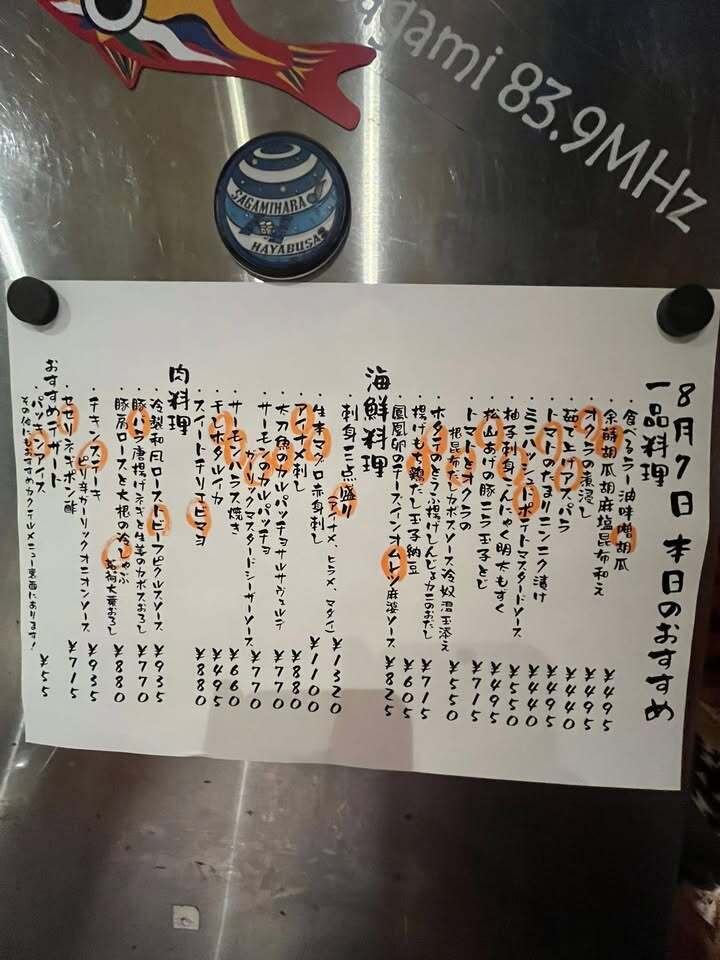 Sagami 83.9MHz
SAGAMIHARA
HAYABUSA2
8月7日 本日のおすすめ
一品料理
・食べるラー油味噌胡瓜 ¥495
・余蒔胡瓜胡麻塩昆布和え ¥495
・オクラの煮浸し ¥440
・茹で上げアスパラ ¥495
・トマトのたまりニンニク漬け ¥440
・ミニハッシュドポテトマスタードソース ¥440
・柚子刺身こんにゃく明太もずく ¥550
・松山あげの豚ニラ玉子とじ ¥495
・トマトとオクラの
根昆布だしカボスソース冷奴温玉添え ¥715
・ホタテのとうふ揚げしんじょカニのおだし ¥550
・揚げもち鶏だし玉子納豆 ¥715
・鳳凰卵のチーズインオムレツ麻婆ソース ¥605
海鮮料理 ¥825
・刺身三点盛り(アイナメ、ヒラメ、マダイ) ¥1320
・生本マグロ赤身刺し ¥1100
・アイナメ刺し ¥880
・太刀魚のカルパッチョサルサヴェルデ ¥770
・サーモンのカルパッチョ
ガーリックマスタードシーザーソース ¥770
・サーモンハラス焼き ¥660
・干しホタルイカ ¥495
・スイートチリエビマヨ ¥880
肉料理
・冷製和風ローストビーフピクルスソース ¥935
・豚バラ唐揚げネギと生姜のカボスおろし ¥770
・豚肩ロースと大根の冷しゃぶ
茗荷大葉おろし ¥880
・チキンステーキ
ピリ辛ガーリックオニオンソース ¥935
・セセリネギポン酢 ¥715
おすすめデザート
・パッキンアイス ¥55
その他にもおすすめカクテルメニュー裏面にあります!